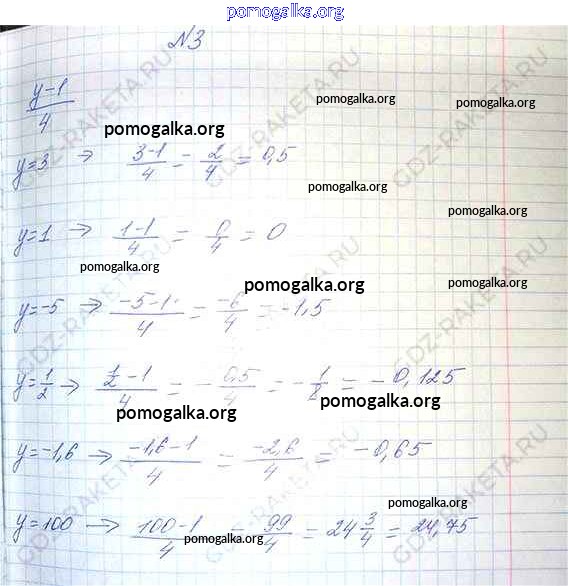 pomogalka.org
№3
(y-1)/4
pomogalka.org
pomogalka.org
pomogalka.org
y=3 → (3-1)/4 = 2/4 = 0,5
pomogalka.org
pomogalka.org
y=1 → (1-1)/4 = 0/4 = 0
pomogalka.org
pomogalka.org
pomogalka.org
y=-5 → (-5-1)/4 = -6/4 = -1,5
pomogalka.org
y=1/2 → (1/2 -1)/4 = -0,5/4 = -1/8 = -0,125
pomogalka.org
pomogalka.org
y=-1,6 → (-1,6-1)/4 = -2,6/4 = -0,65
pomogalka.org
y=100 → (100-1)/4 = 99/4 = 24 3/4 = 24,75
pomogalka.org
GDZ-RAKETA.RU
GDZ-RAKETA.RU
GDZ-RAKETA.RU
GDZ-RAKETA.RU
GDZ-RAKETA.RU
GDZ-RAKETA.RU